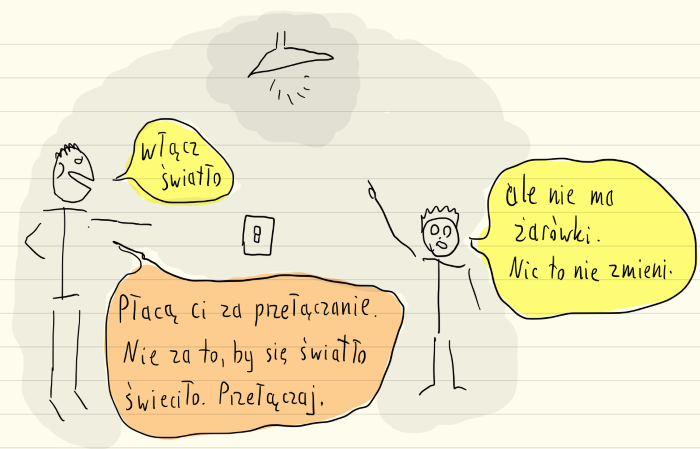 włącz
światło
ale nie ma
żarówki.
Nic to nie zmieni.
Płacą ci za przełączanie.
Nie za to, by się światło
świeciło. Przełączaj.